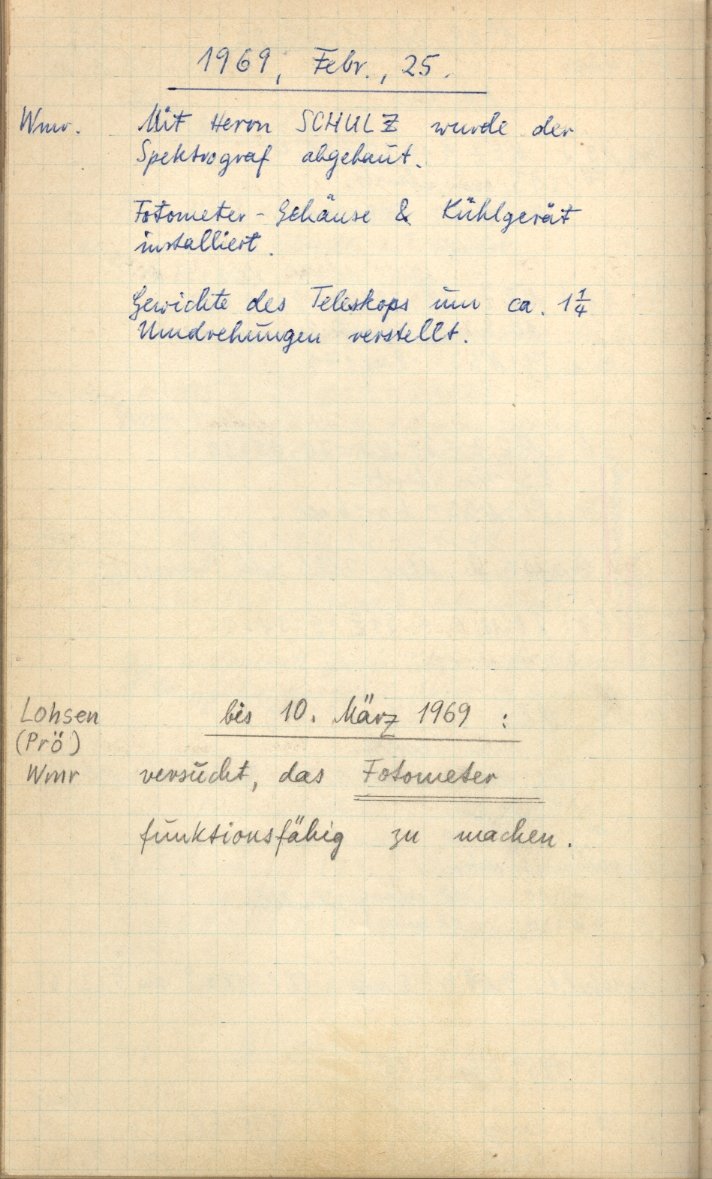 1969, Febr., 25.
Wmr. Mit Herrn SCHULZ wurde der
Spektrograf abgebaut.
Fotometer - Gehäuse & Kühlgerät
installiert.
Gewichte des Teleskops um ca. 1 1/4
Umdrehungen verstellt.
Lohsen bis 10. März 1969 :
(Prö)
Wmr versucht, das Fotometer
funktionsfähig zu machen.